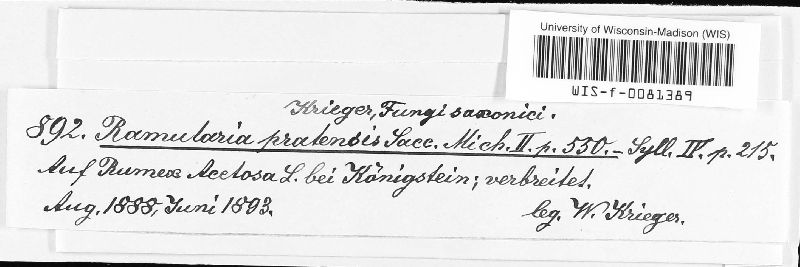 University of Wisconsin-Madison (WIS)
WIS-f-0081389
Krieger, Fungi saxonici.
892. Ramularia pratensis Sacc. Mich. II. p. 550. – Syll. IV. p. 215.
Auf Rumex Acetosa L. bei Königstein; verbreitet.
Aug. 1888, Juni 1893. leg. W. Krieger.